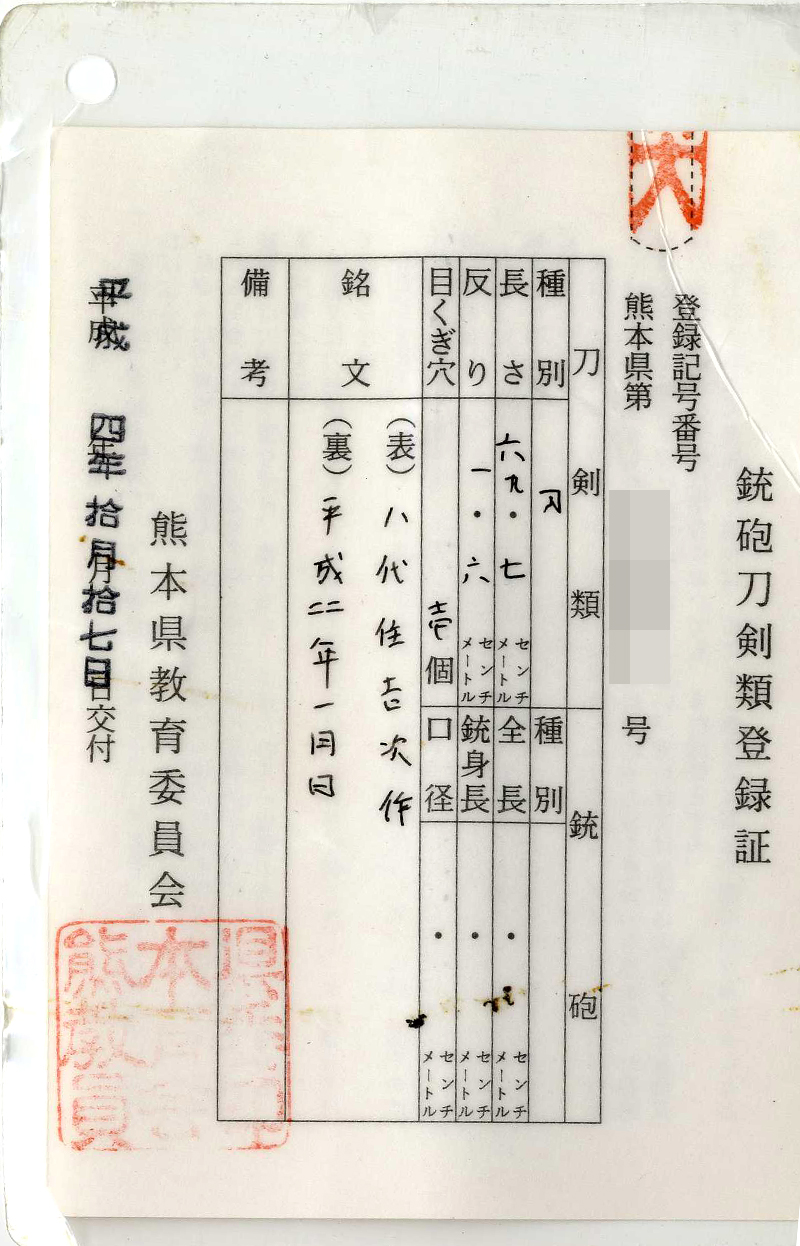 銃砲刀剣類登録証
登録記号番号
熊本県第 号
刀剣類
種別 刀
長さ 六九・七 センチメートル
反り 一・六 センチメートル
目くぎ穴 壱個
銃砲
種別
全長 ・ センチメートル
銃身長 ・ センチメートル
口径 ・ センチメートル
銘文
(表)八代住吉次作
(裏)平成二二年一月日
備考
熊本県教育委員会
平成四年拾月拾七日交付